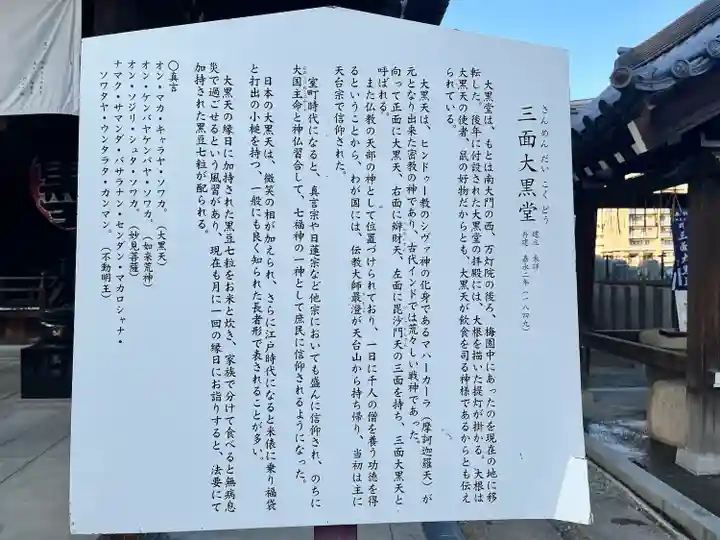 さんめんだいこくどう
三面大黒堂
建立 未詳
再建 嘉永二年(一八四九)
大黒堂は、もとは南大門の西、万灯院の後ろ、梅園中にあったのを現在の地に移
転した。後年に付設された大黒堂の拝殿には、大根を描いた提灯が掛かる。大根は
大黒天の使者、鼠の好物だからとも、大黒天が飲食を司る神様であるからとも伝え
られている。
大黒天は、ヒンドゥー教のシヴァ神の化身であるマハーカーラ(摩訶迦羅天)が
元となり出来た密教の神であり、古代インドでは荒々しい戦神であった。
向って正面に大黒天、右面に辯財天、左面に毘沙門天の三面を持ち、三面大黒天と
呼ばれる。
また仏教の天部の神として位置づけられており、一日に千人の僧を養う功徳を得
るということから、わが国には、伝教大師最澄が天台山から持ち帰り、当初は主に
天台宗で信仰された。
室町時代になると、真言宗や日蓮宗など他宗においても盛んに信仰され、のちに
大国主命と神仏習合して、七福神の一神として庶民に信仰されるようになった。
日本の大黒天は、微笑の相が加えられ、さらに江戸時代になると米俵に乗り福袋
と打出の小槌を持つ、一般にも良く知られた長者形で表されることが多い。
大黒天の縁日に加持された黒豆七粒をお米と炊き、家族で分けて食べると無病息
災で過ごせるという風習があり、現在も月に一回の縁日にお詣りすると、法要にて
加持された黒豆七粒が配られる。
〇真言
オン・マカ・キャラヤ・ソワカ。(大黒天)
オン・ケンバヤケンバヤ・ソワカ。(如来荒神)
オン・ソジリ・シュタ・ソワカ。(妙見菩薩)
ナマク・サマンダ・バサラナン・センダン・マカロシャナ・
ソワタヤ・ウンタラタ・カンマン。(不動明王)
三面大黒